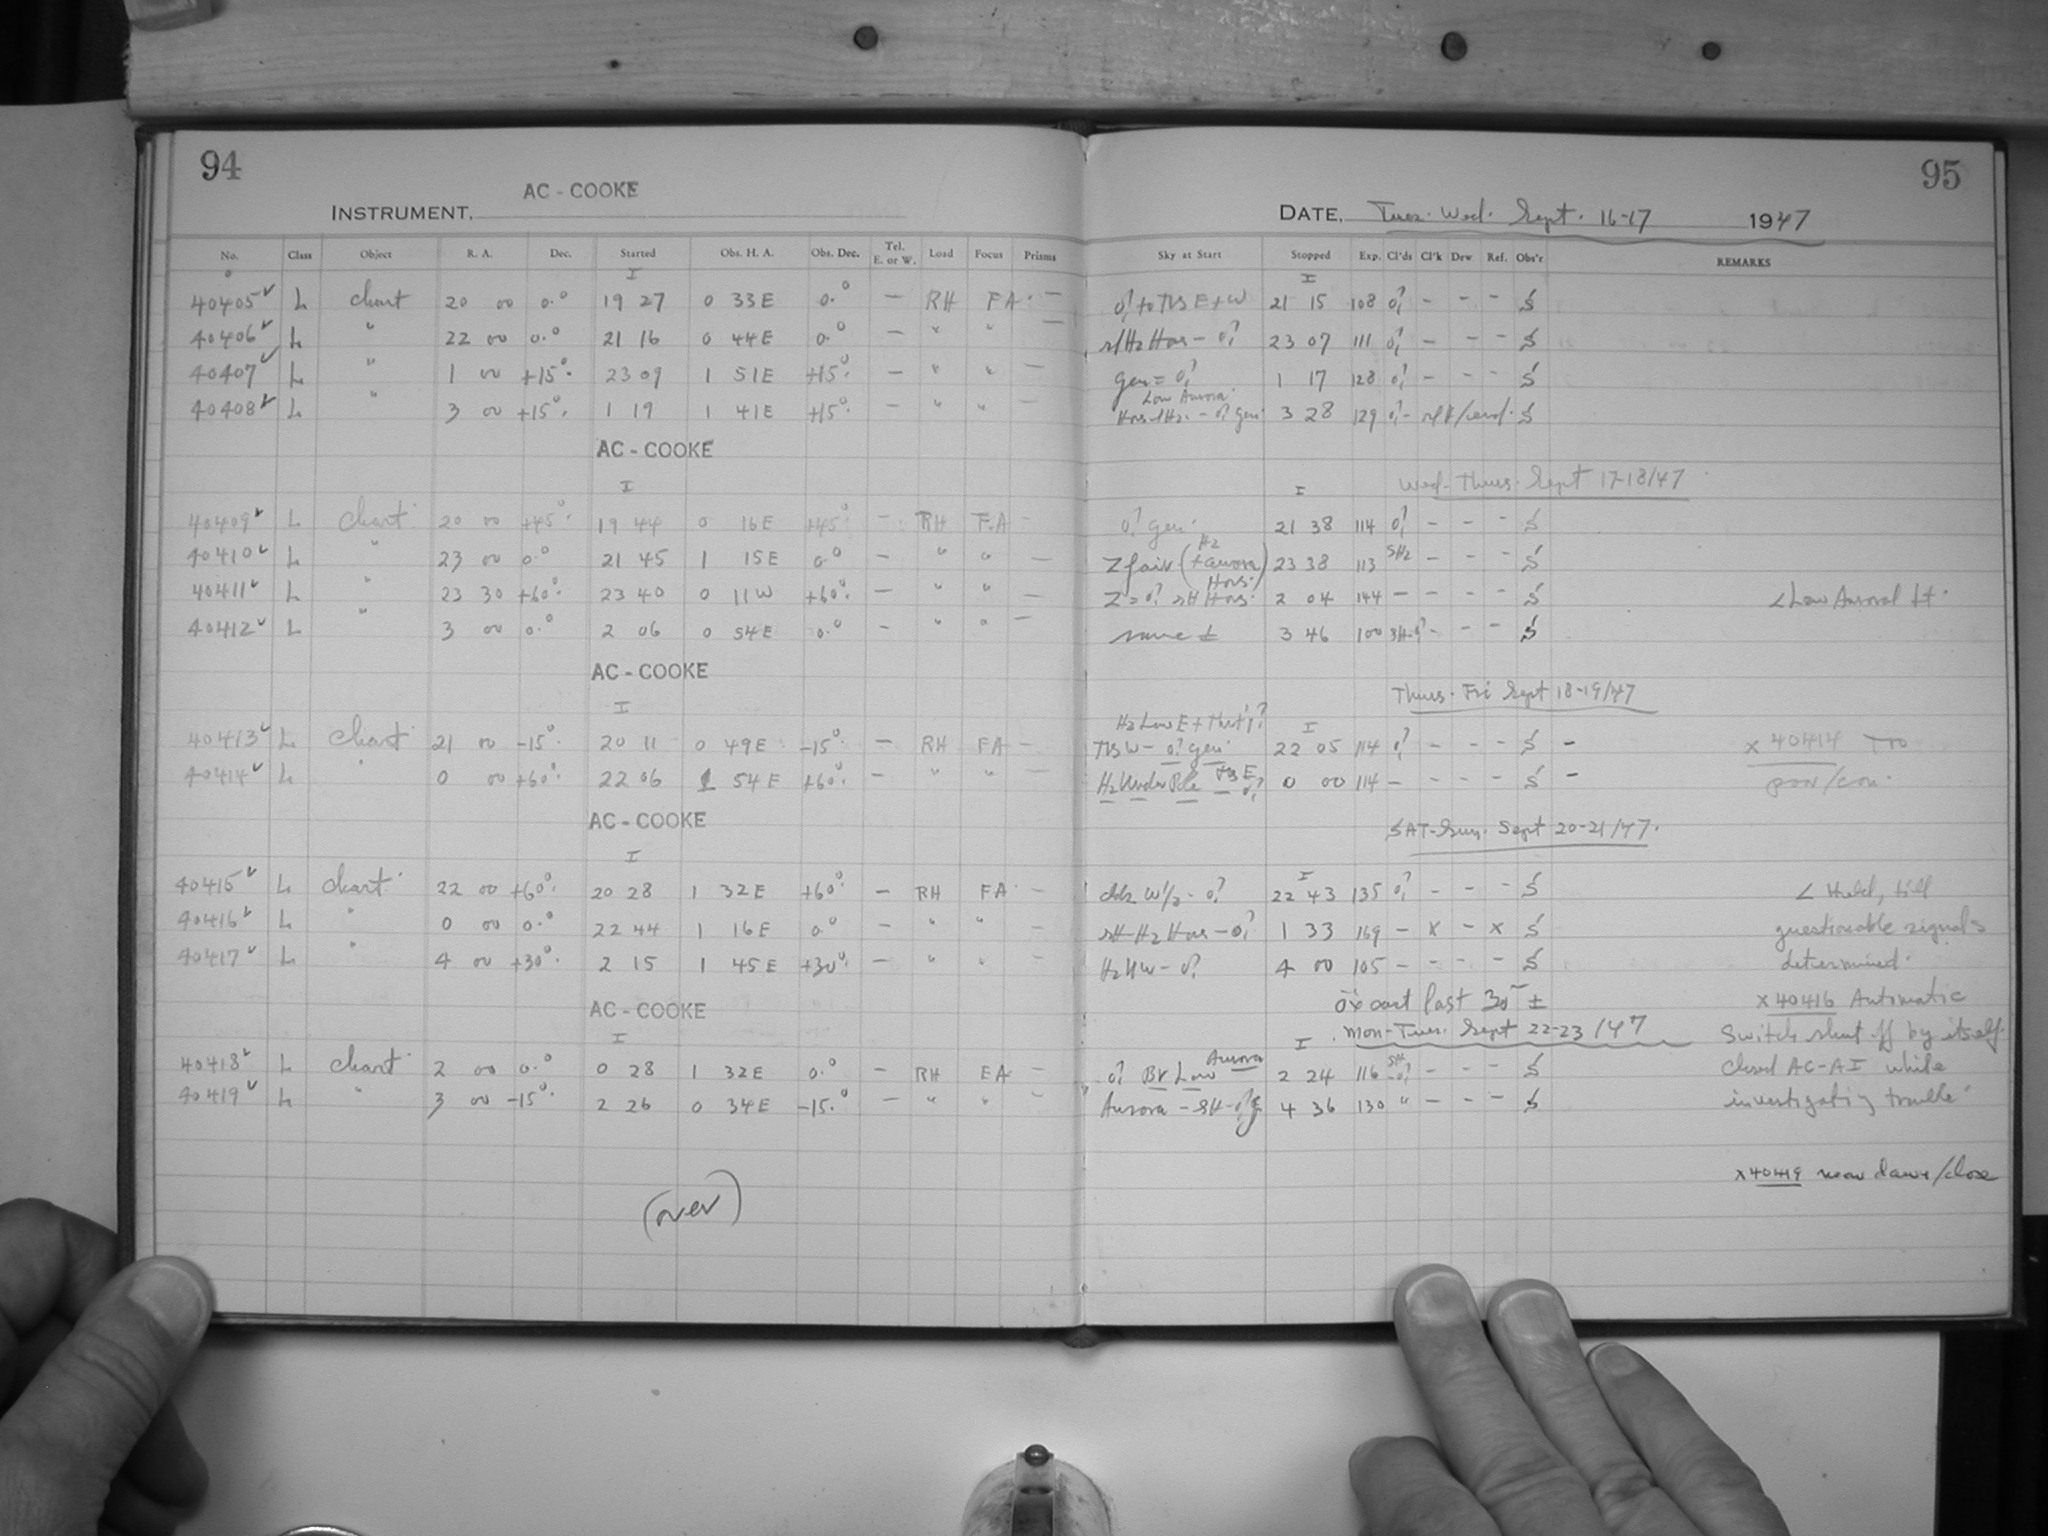 94
95
AC - COOKE
INSTRUMENT.
DATE. Tues. Wed. Sept. 16-17 1947
No. Class Object R. A. Dec. Started Obs. H. A. Obs. Dec. Tel. E. or W. Load Focus Prisms Sky at Start Stopped Exp. Cl'ds Cl'k Dew Ref. Obs'r REMARKS
I I
40405 L chart 20 00 0.° 19 27 0 33E 0.° — RH FA. — 21 15 108 - - - S
40406 L " 22 00 0.° 21 16 0 44E 0.° — " " — 23 07 111 - - - S
40407 L " 1 00 +15° 23 09 1 51E +15° — " " — 1 17 128 - - - S
Low Aurora
40408 L " 3 00 +15° 1 19 1 41E +15° — " " — 3 28 129 S
AC - COOKE
Wed-Thurs. Sept 17-18/47
I I
40409 L chart 20 00 +45° 19 44 0 16E +45° - RH FA - 21 38 114 - - - S
40410 L " 23 00 0.° 21 45 1 15E 0.° — " " — Z fair (+ aurora Hors.) 23 38 113 - - - S
40411 L " 23 30 +60° 23 40 0 11W +60° — " " — 2 04 144 - - - - S < Low Auroral Lt.
40412 L " 3 00 0.° 2 06 0 54E 0.° - " " — same ± 3 46 100 - - - S
AC - COOKE
Thurs. Fri Sept 18-19/47
I I
40413 L chart 21 00 -15° 20 11 0 49E -15° — RH FA - 22 05 114 - - - S - x 40414
40414 L " 0 00 +60° 22 06 1 54E +60° - " " — H2 Under Pole 0 00 114 - - - - S - poor/con.
AC - COOKE
SAT-Sun. Sept 20-21/47.
I I
40415 L chart 22 00 +60° 20 28 1 32E +60° - RH FA. - 22 43 135 - - - S < Held, till
40416 L " 0 00 0.° 22 44 1 16E 0.° - " " - 1 33 169 - x - x S questionable signals
40417 L " 4 00 +30° 2 15 1 45E +30° - " " - 4 00 105 - - - - S determined.
AC - COOKE
last 30 ± x 40416 Automatic
Mon-Tues. Sept 22-23/47 Switch shut off by itself.
I I
40418 L chart 2 00 0.° 0 28 1 32E 0.° - RH FA - Br Low Aurora 2 24 116 - - - S closed AC-AI while
40419 L " 3 00 -15° 2 26 0 34E -15.° - " " - Aurora 4 36 130 " - - - S investigating trouble.
x 40419 near dawn/close
(over)